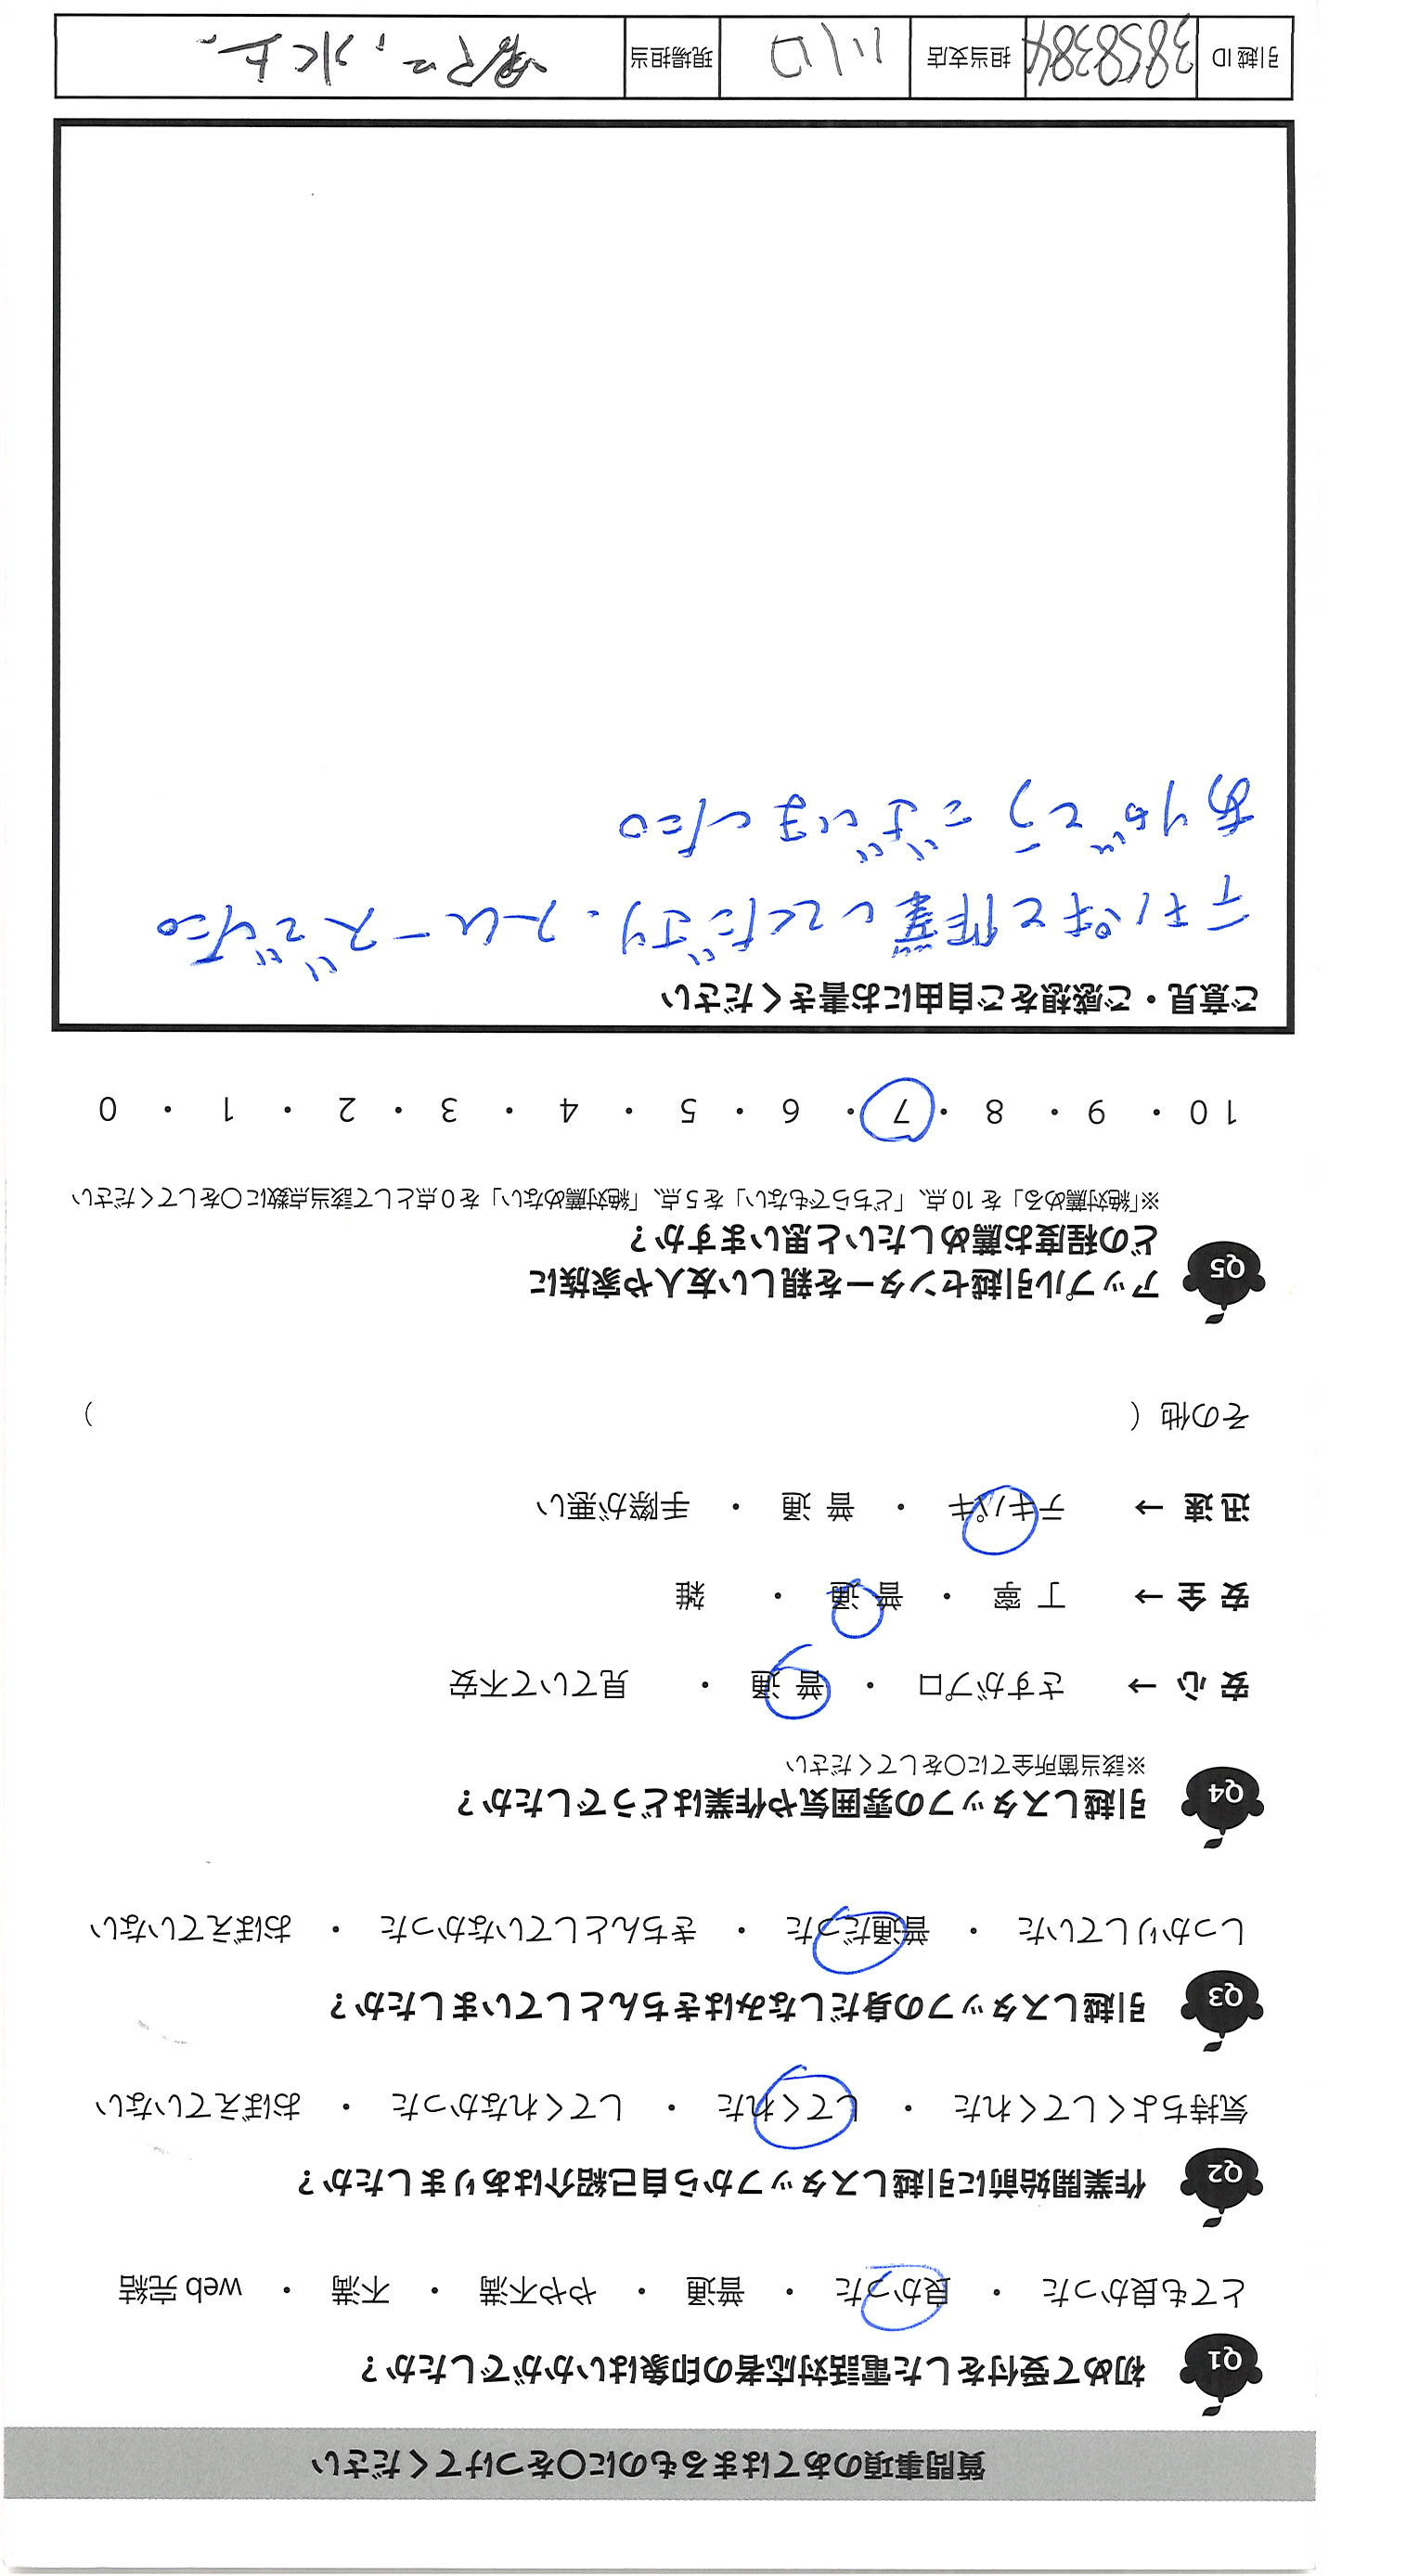 質問事項のあてはまるものに〇をつけてください
Q1 初めて受付をした電話対応者の印象はいかがでしたか？
とても良かった ・ 良かった ・ 普通 ・ やや不満 ・ 不満 ・ web 完結
Q2 作業開始前に引越しスタッフから自己紹介はありましたか？
気持ちよくしてくれた ・ してくれた ・ してくれなかった ・ おぼえていない
Q3 引越しスタッフの身だしなみはきちんとしていましたか？
しっかりしていた ・ 普通だった ・ きちんとしていなかった ・ おぼえていない
Q4 引越しスタッフの雰囲気や作業はどうでしたか？
※該当箇所全てに〇をしてください
安 心 → さすがプロ ・ 普 通 ・ 見ていて不安
安 全 → 丁 寧 ・ 普 通 ・ 雑
迅 速 → テキパキ ・ 普 通 ・ 手際が悪い
その他（ ）
Q5 アップル引越センターを親しい友人や家族に
どの程度お薦めしたいと思いますか？
※「絶対薦める」を 10 点、「どちらでもない」を 5 点、「絶対薦めない」を 0 点として該当点数に〇をしてください
10 ・ 9 ・ 8 ・ 7 ・ 6 ・ 5 ・ 4 ・ 3 ・ 2 ・ 1 ・ 0
ご意見・ご感想をご自由にお書きください
テキパキと作業してくださり、スムーズでした。
ありがとうございました。
引越 ID 3858384 担当支店 川口 現場担当